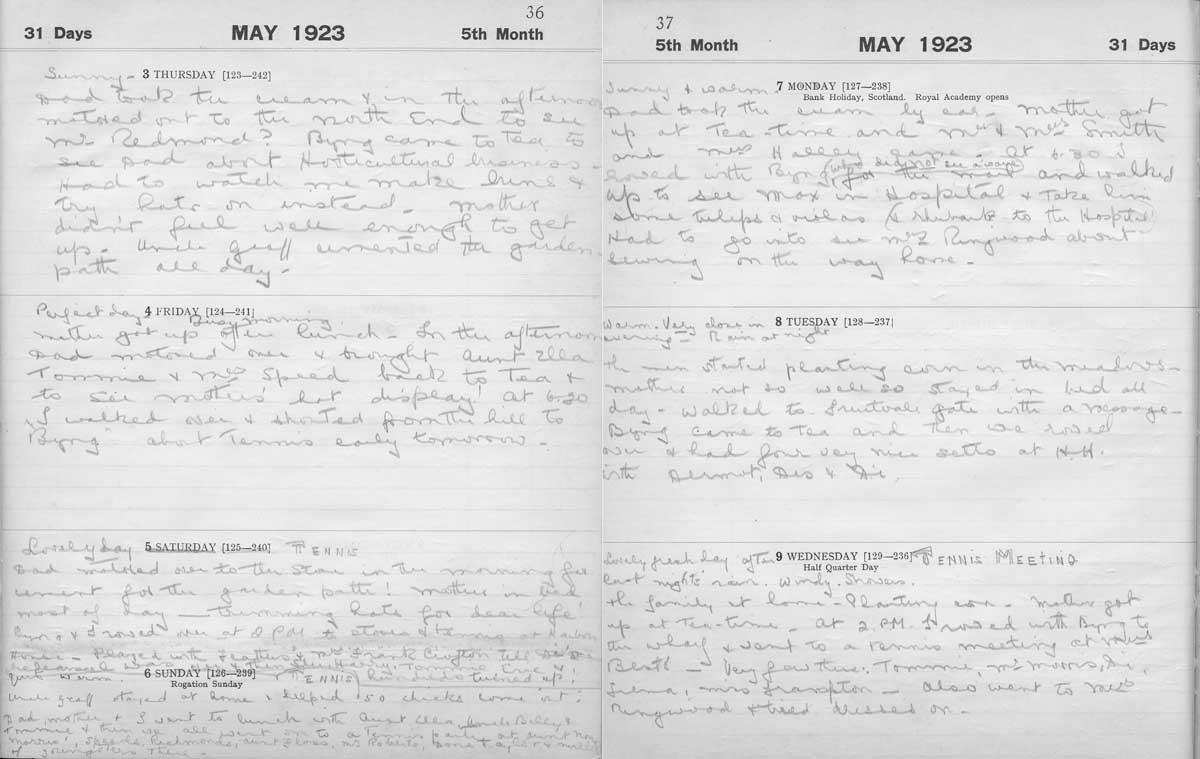 36
31 Days MAY 1923 5th Month
Sunny - 3 THURSDAY [123—242]
Dad took the cream & in the afternoon
motored out to the North End to see
Mr Redmond? Byng came to Tea to
see Dad about Horticultural business -
Had to watch me make buns &
try hats on instead - Mother
didn't feel well enough to get
up - Uncle Geoff cemented the garden
path all day -
Perfect day 4 FRIDAY [124—241]
Busy morning
Mother got up after lunch - In the afternoon
Dad motored over & brought Aunt Ella
Tommie & Mrs Speed back to Tea &
to see mother's hat display! At 6.30
I walked over & shouted from the hill to
"Byng" about Tennis early tomorrow -
Lovely day 5 SATURDAY [125—240] TENNIS
Dad motored over to the Store in the morning for
cement for the garden path! Mother in bed
most of day - trimming hats for dear life!
Byng & I rowed over at 2 P.M. &
House - Played with & Mr Frank Crofton till
warm. Tommie
6 SUNDAY [126—239] TENNIS turned up!
Rogation Sunday
Uncle Geoff stayed at home & helped 50 chicks come 'out'!
Dad, mother & I went to lunch with Aunt Ella, Uncle Billy &
Tommie & then we all went on to a Tennis party at Aunt
Morris', Speeds, Redmonds, Mr Roberts,
of youngsters there -
37
5th Month MAY 1923 31 Days
Sunny & warm 7 MONDAY [127—238]
Bank Holiday, Scotland. Royal Academy opens
Dad took the cream by car - Mother got
up at Tea-time and Mr & Mrs Smith
and Mrs Halley came - At 6.30 I
rowed with Byng for the mail and walked
up to see Max in Hospital & take him
some tulips & violas (& rhubarb to the Hospital)
Had to go into see Mrs Ringwood about
sewing on the way home -
Warm. Very close in 8 TUESDAY [128—237]
evening - Rain at night
The men started planting corn in the meadows -
Mother not so well so stayed in bed all
day - Walked to Fruitvale gate with a message -
Byng came to Tea and then we rowed
over & had four very nice setts at H.H.
with Dermot, Des & Di.
Lovely fresh day after 9 WEDNESDAY [129—236] TENNIS MEETING
Half Quarter Day
last nights' rain. Windy. Showers.
The family at home - Planting corn - Mother got
up at Tea-time - At 2 P.M. I rowed with Byng to
the wharf & went to a tennis meeting at Mrs
- Very few there; Tommie, Mr Morris, Di,
Mrs Frampton - Also went to Mrs
Ringwood & tried dresses on -